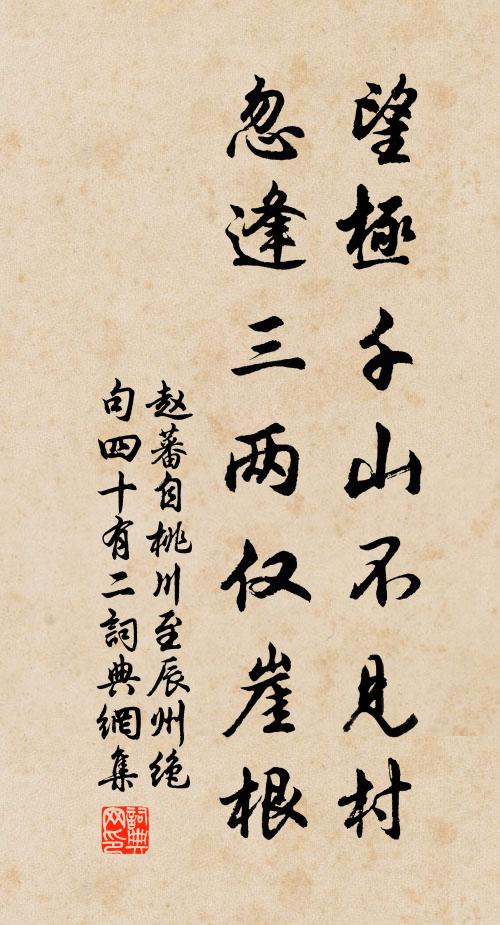 望極千山不見村
忽逢三两仅崖根
赵蕃自桃川至辰州绝
句四十有二詞典網集
詞典
网印